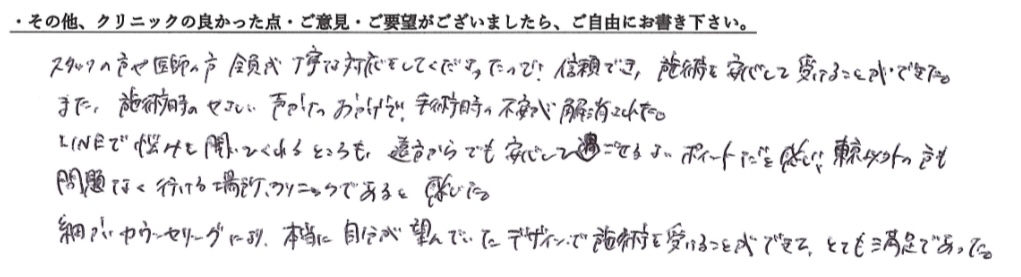 ・その他、クリニックの良かった点・ご意見・ご要望がございましたら、ご自由にお書き下さい。
スタッフの方や医師の方 全員が丁寧な対応をしてくださったので、信頼でき、施術を安心して受けることができた。
また、施術時のやさしい声かけのおかげで、手術時の不安が解消された。
LINEで悩みを聞いてくれるところも、遠方からでも安心して過ごせるよいポイントだと感じ、東京の方も
問題なく行ける場所、クリニックであると感じた。
細かいカウンセリングにより、本当に自分が望んでいたデザインで施術を受けることができて、とても満足であった。